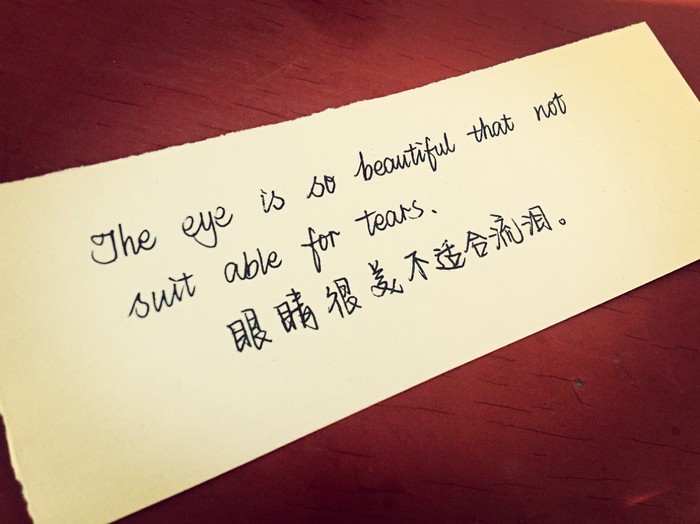 The eye is so beautiful that not
suit able for tears.
眼睛很美不适合流泪。